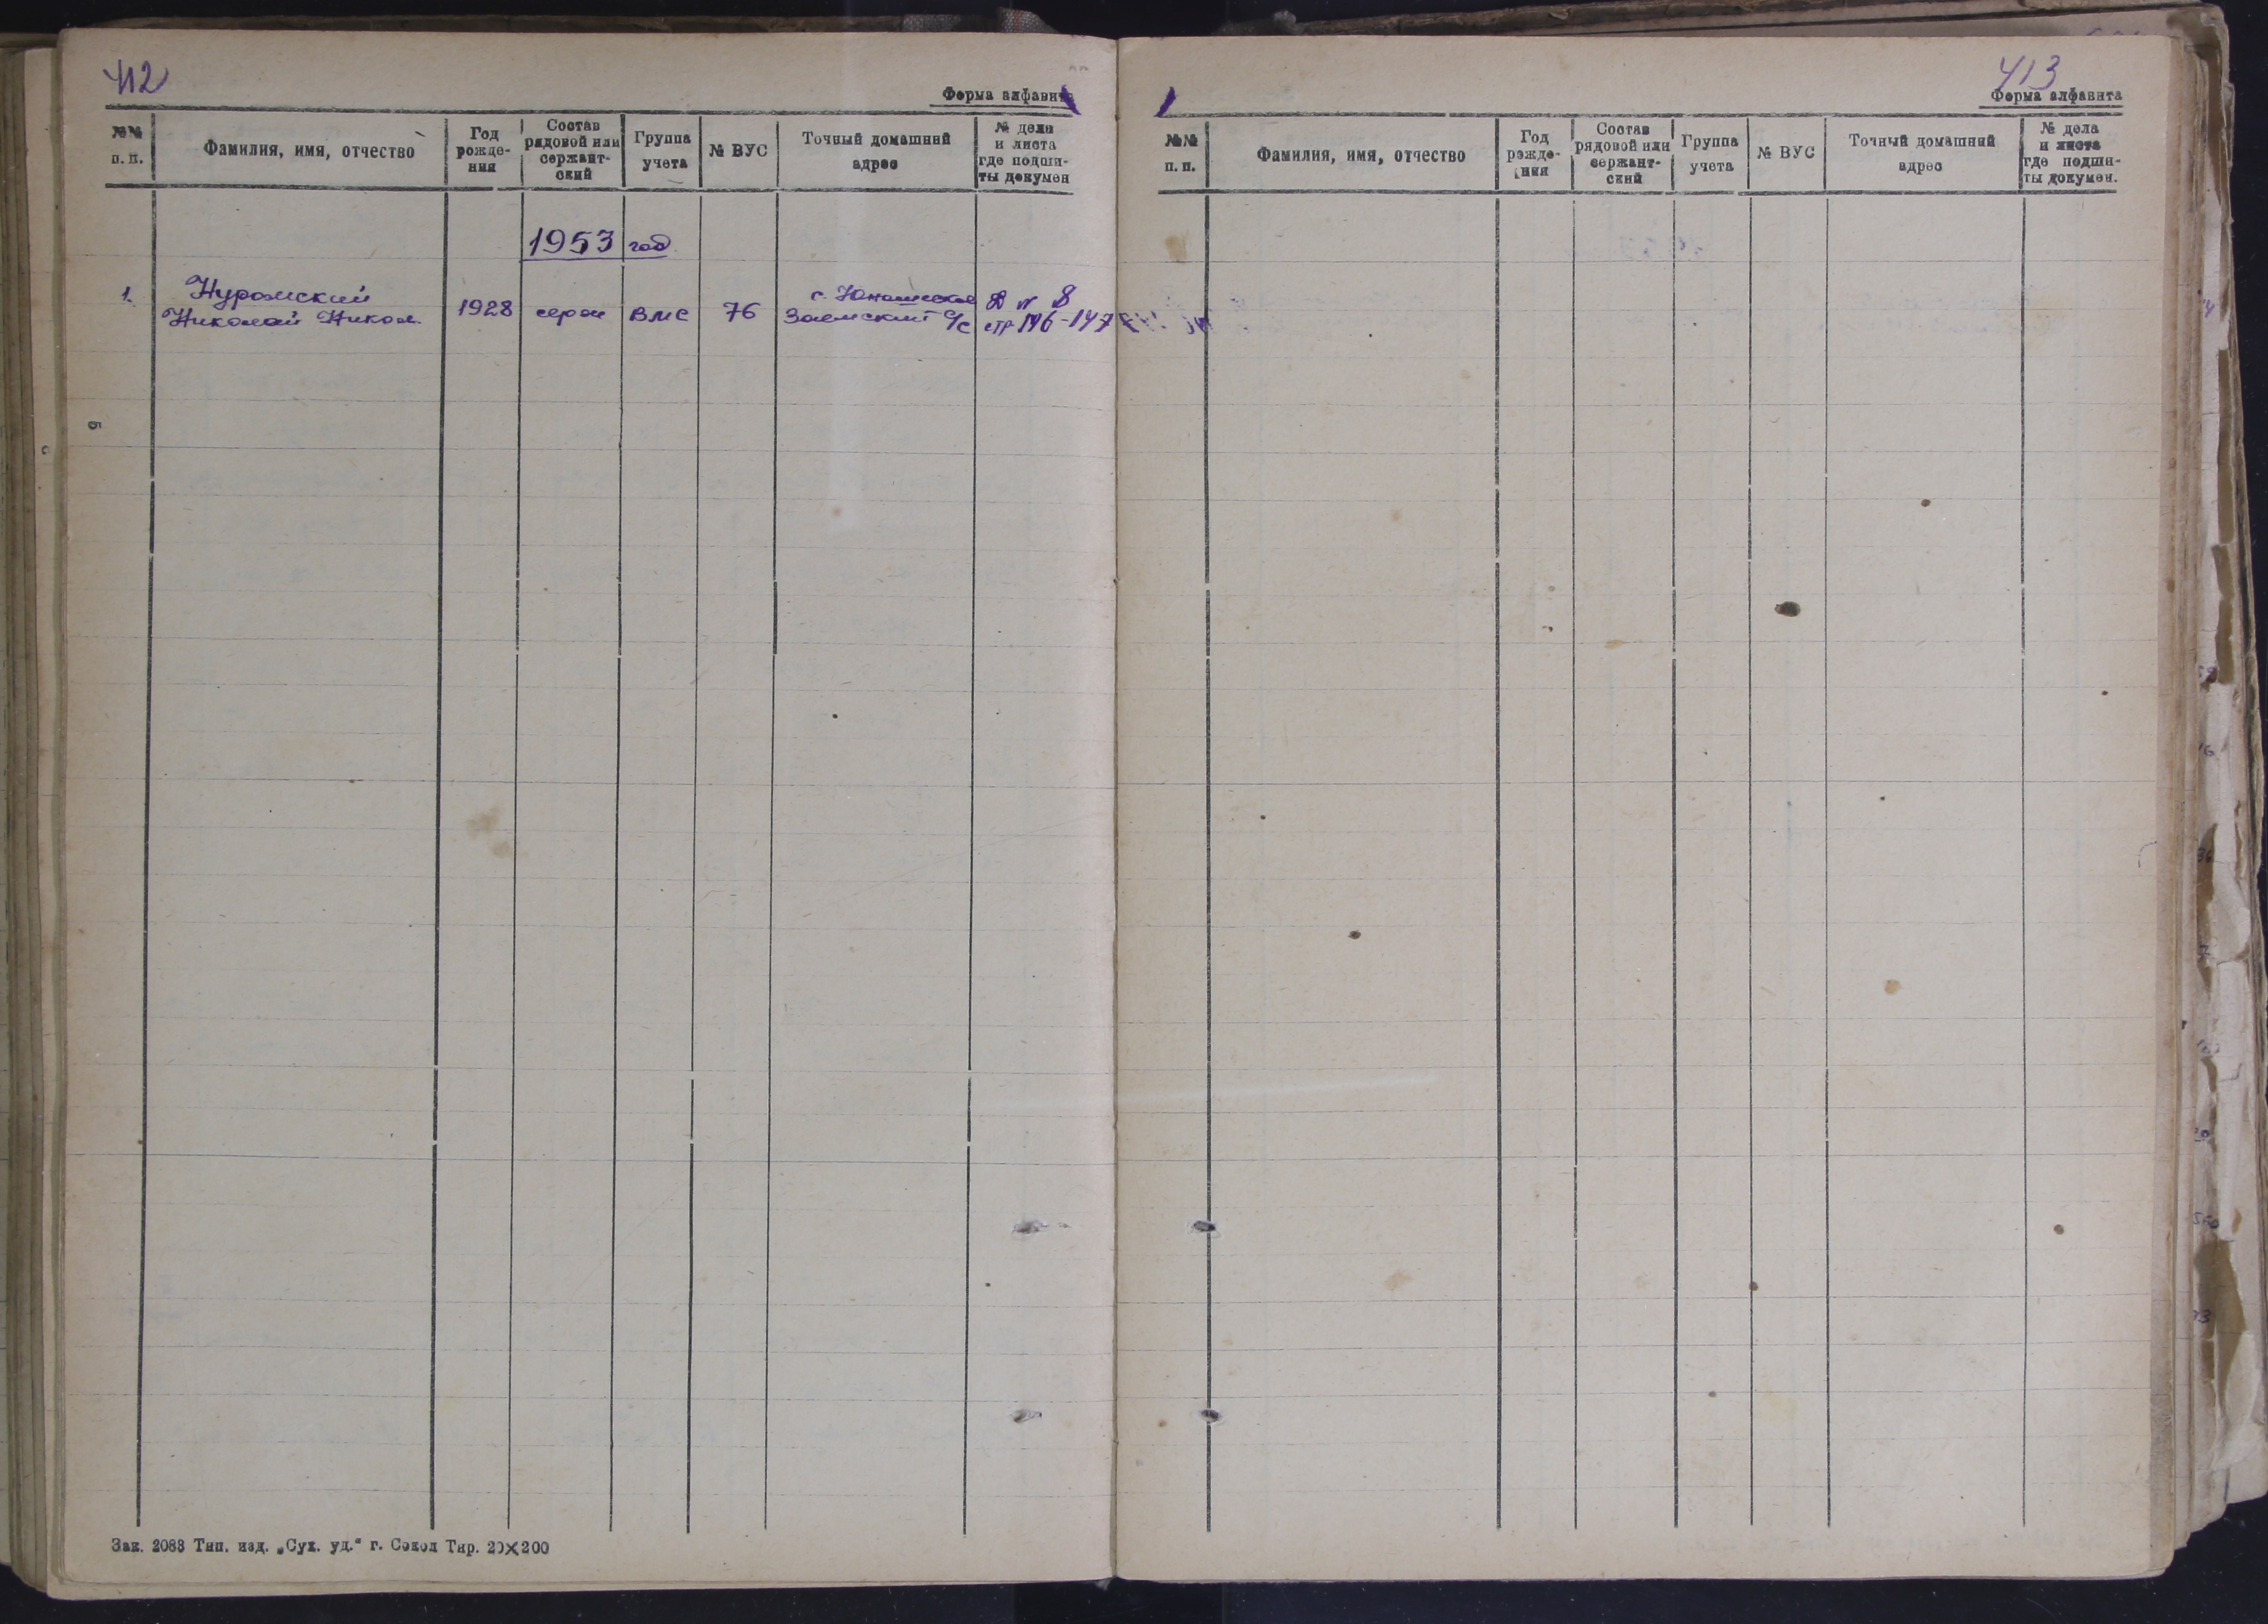 412
Форма алфавита
№№
п. п.
Фамилия, имя, отчество
Год
рожде-
ния
Состав
рядовой или
сержант-
ский
Группа
учета
№ ВУС
Точный домашний
адрес
№ дела
и листа
где подши-
ты докумен
1953 год
1.
Нуромский
Николай Никол.
1928
серж
ВМС
76
с.
Заемский с/с
Д № 8
стр 146-147
Зак. 2088 Тип. изд. „Сух. уд.“ г. Сокол Тир. 20×200
413
Форма алфавита
№№
п. п.
Фамилия, имя, отчество
Год
рожде-
ния
Состав
рядовой или
сержант-
ский
Группа
учета
№ ВУС
Точный домашний
адрес
№ дела
и листа
где подши-
ты докумен.